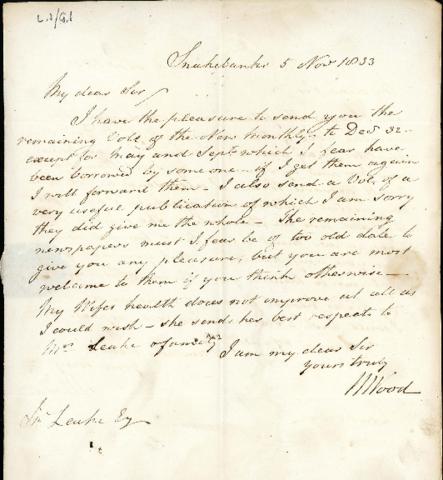 L.1/G.1
Snakebanks 5 Nov 1833
My dear Sir
I have the pleasure to send you the
remaining Vols. of the New Monthly to Decr 32 -
except for May and Septr which I fear have
been borrowed by some one - if I get them again
I will forward them - I also send a Vol. of a
very useful publication of which I am sorry
they did give me the whole - The remaining
newspapers must I fear be of too old date to
give you any pleasure, but you are most
welcome to them if you think otherwise -
My Wifes health does not improve at all as
I could wish - she sends her best respects to
Mrs Leake &
I am my dear Sir
Yours truly
Wood
Leake Esq